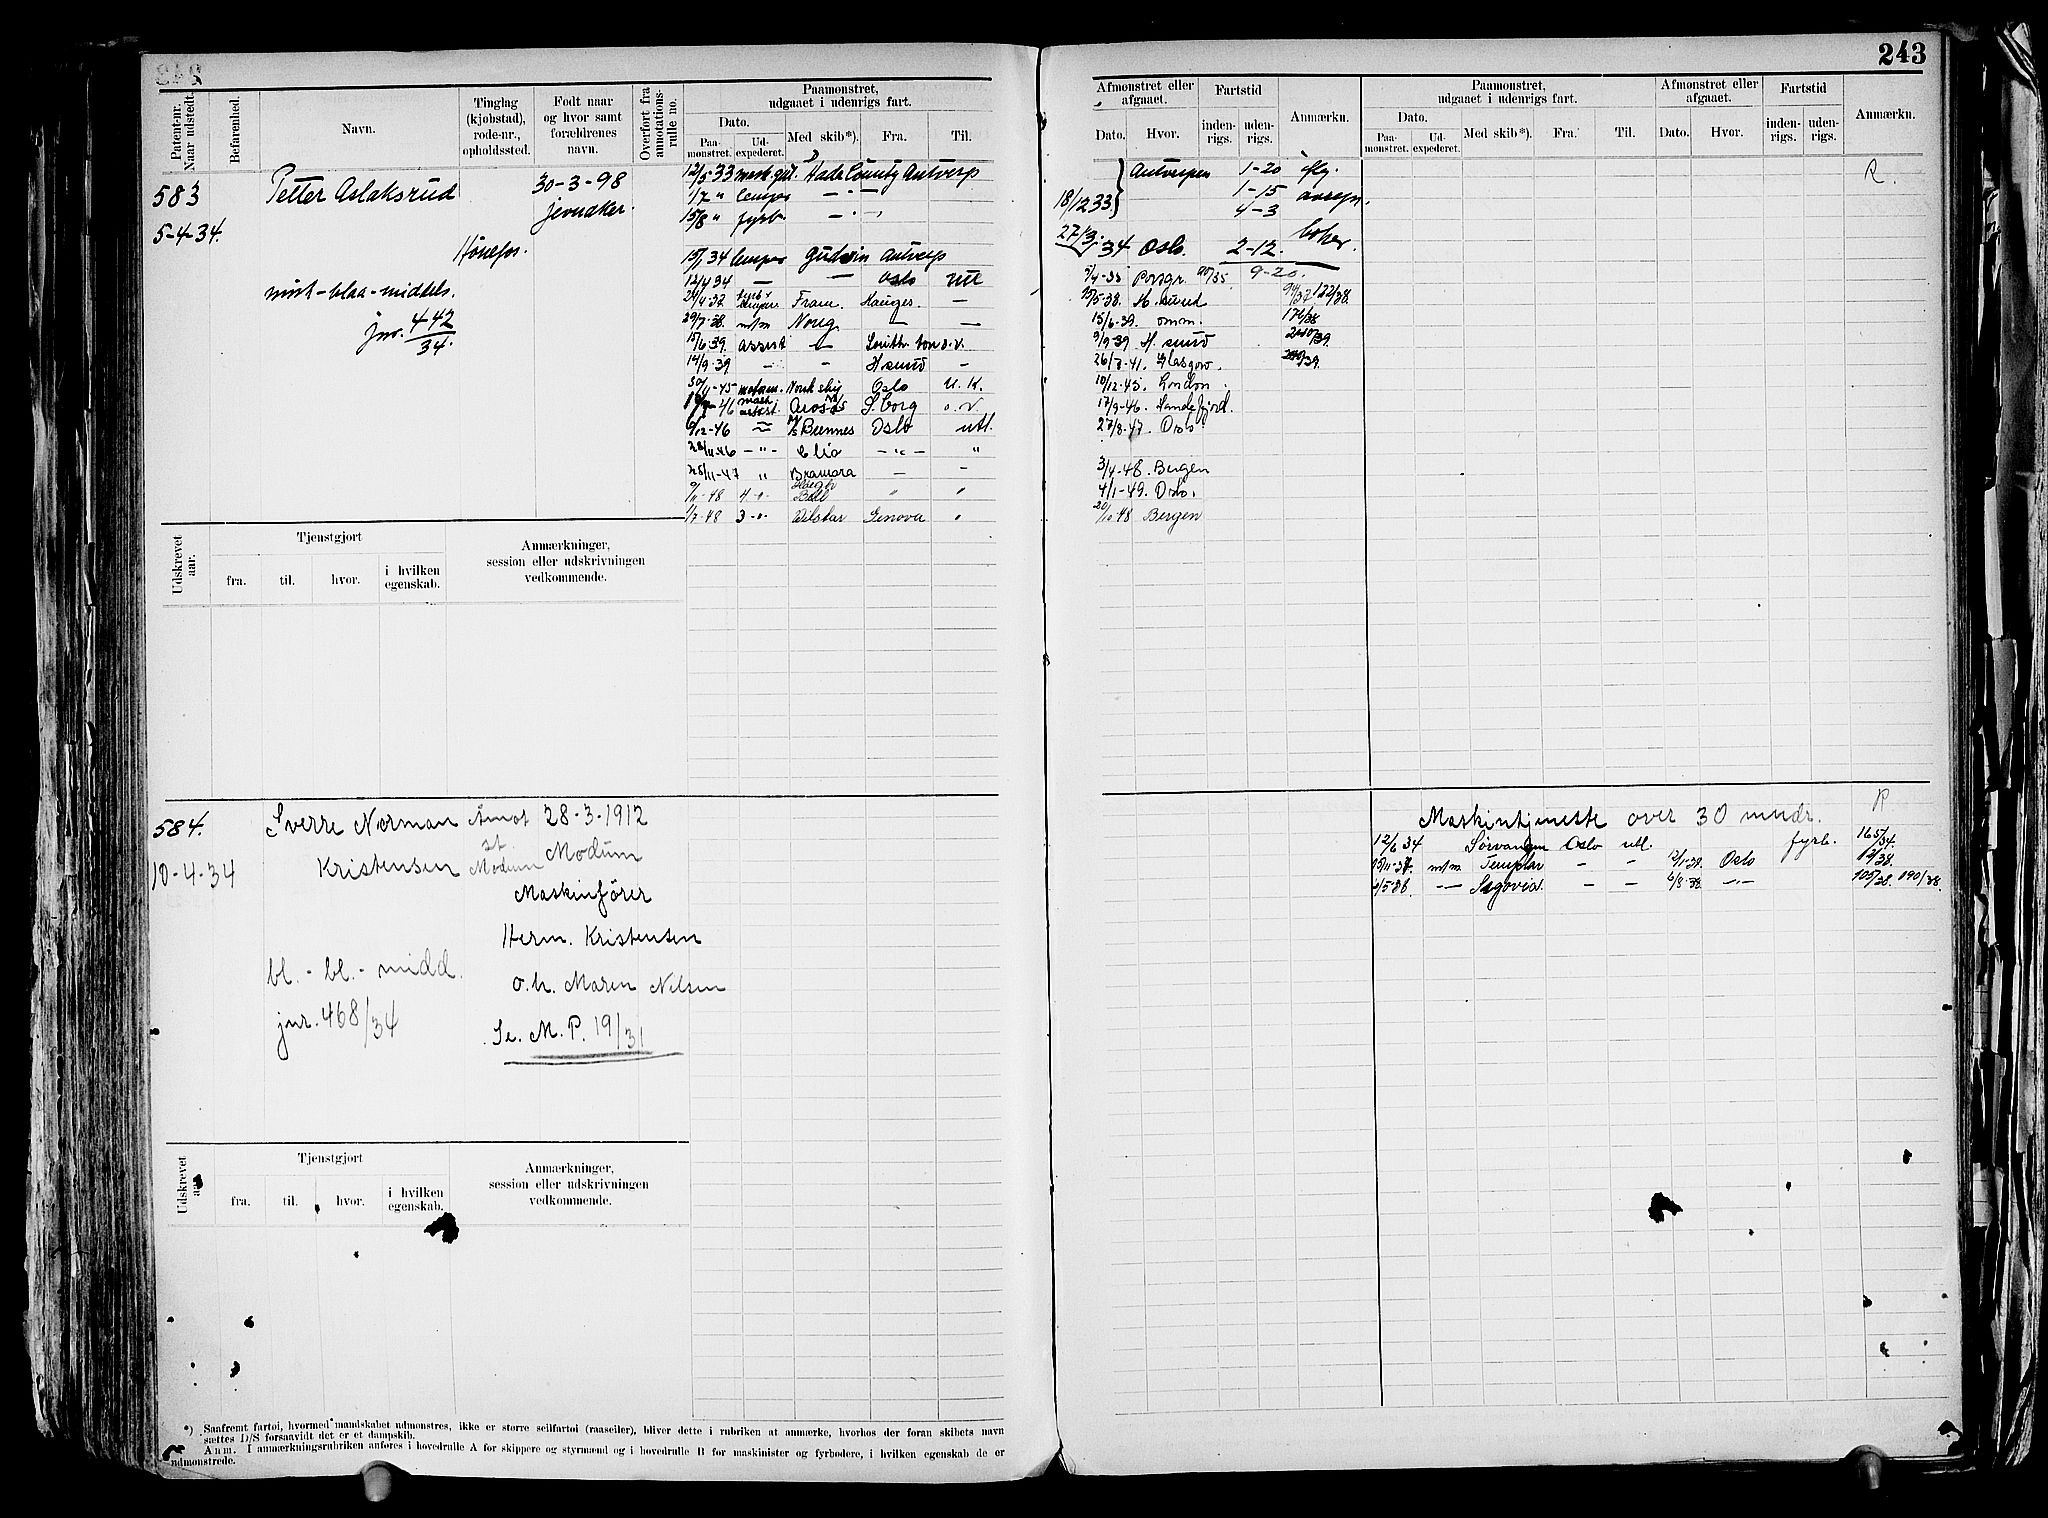 243
Patent-nr. Naar udstedt.
Befarenhed.
Navn.
Tinglag (kjøbstad), rode-nr., opholdssted.
Født naar og hvor samt forældrenes navn.
Overført fra annotations-rulle no.
Paamonstret, udgaaet i udenrigs fart.
Dato.
Paa-monstret.
Ud-expederet.
Med skib*).
Fra.
Til.
Afmonstret eller afgaaet.
Dato.
Hvor.
Fartstid
inden-rigs.
uden-rigs.
Anmærkn.
Paamonstret, udgaaet i udenrigs fart.
Dato.
Paa-monstret.
Ud-expederet.
Med skib*).
Fra.
Til.
Afmonstret eller afgaaet.
Dato.
Hvor.
Fartstid
inden-rigs.
uden-rigs.
Anmærkn.
583
Petter Aslaksrud
30-3-98
Jevnaker.
5-4-34.
Hönefos.
mörk-blaa-middels.
jnr. 442/34.
12/5 33 Hada County Antverp
1/7 " lemper - " -
15/8 " fyrb - " -
15/1 34 lemper Gudvin Antverp
12/4 34 — Oslo utl
24/4 37 Fram. Hauges. —
29/7-38. m/m Norig. — —
15/6-39. assist — South. ton o.v.
14/9-39 - - - H sund -
30/11-45 Norsk skip Oslo U.K.
46 Aros S.borg o.v.
9/12-46 Buennes Oslo utl.
28/11-46 - " - Clio - " - "
25/11-47 " Bramora — -
9/11-48 4-o- Høegh Bell " "
1/7-48 3-o- Vilstar Genova "
Antverpen 1-20
18/12 33 1-15
4-3
27/3-34 Oslo. 2-12.
9-20.
5/4-35 Porsgr.
15/5-38. H.sund 122/38.
15/6-39. omm. 176/38
9/9-39 H.sund
26/8-41. Glasgow.
10/12-45. London.
17/9-46. Sandefjord.
27/8-47. Oslo
3/4-48. Bergen
4/1-49. Oslo.
20/10-48 Bergen
R.
Udskrevet aar.
Tjenstgjort
fra.
til.
hvor.
i hvilken egenskab.
Anmærkninger, session eller udskrivningen vedkommende.
584.
Sverre Norman Åmot 28-3-1912
Kristensen st. Modum Modum
10-4-34
Maskinfører
Herm. Kristensen
bl.-bl.-midd.
o.h. Maren Nilsen
jnr. 468/34
Se. M.P. 19/31
R
Maskintjeneste over 30 mndr.
12/6 34 Sörvangen Oslo utl. fyrb. 165/34.
15/11-37. m/m Templar - - 12/1-38. Oslo 12/38.
4/5-38 — Segovia - - 6/8-38. -"- 105/38. 190/38.
Udskrevet aar.
Tjenstgjort
fra.
til.
hvor.
i hvilken egenskab.
Anmærkninger, session eller udskrivningen vedkommende.
*) Saafremt fartøi, hvormed mandskabet udmonstres, ikke er større seilfartøi (raaseiler), bliver dette i rubriken at anmærke, hvorhos der foran skibets navn
sættes D/S forsaavidt det er et dampskib.
Anm. I anmærkningsrubriken anføres i hovedrulle A for skippere og styrmænd og i hovedrulle B for maskinister og fyrbødere, i hvilken egenskab de er
udmonstrede.